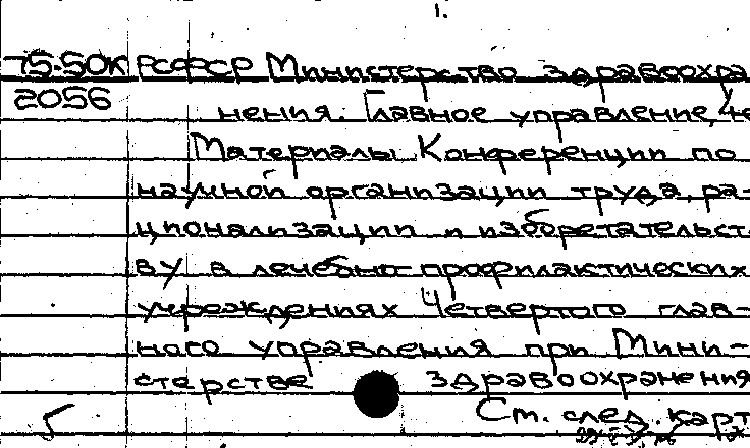 1.
75-50К РСФСР Министерство здравоохра
2056 нения. Главное управление, 4е
Материалы Конференции по
научной организации труда, ра-
ционализации и изобретательст-
ву в лечебно-профилактических
учреждениях Четвертого глав-
ного управления при Мини-
стерстве здравоохранения
5 См. след. карт